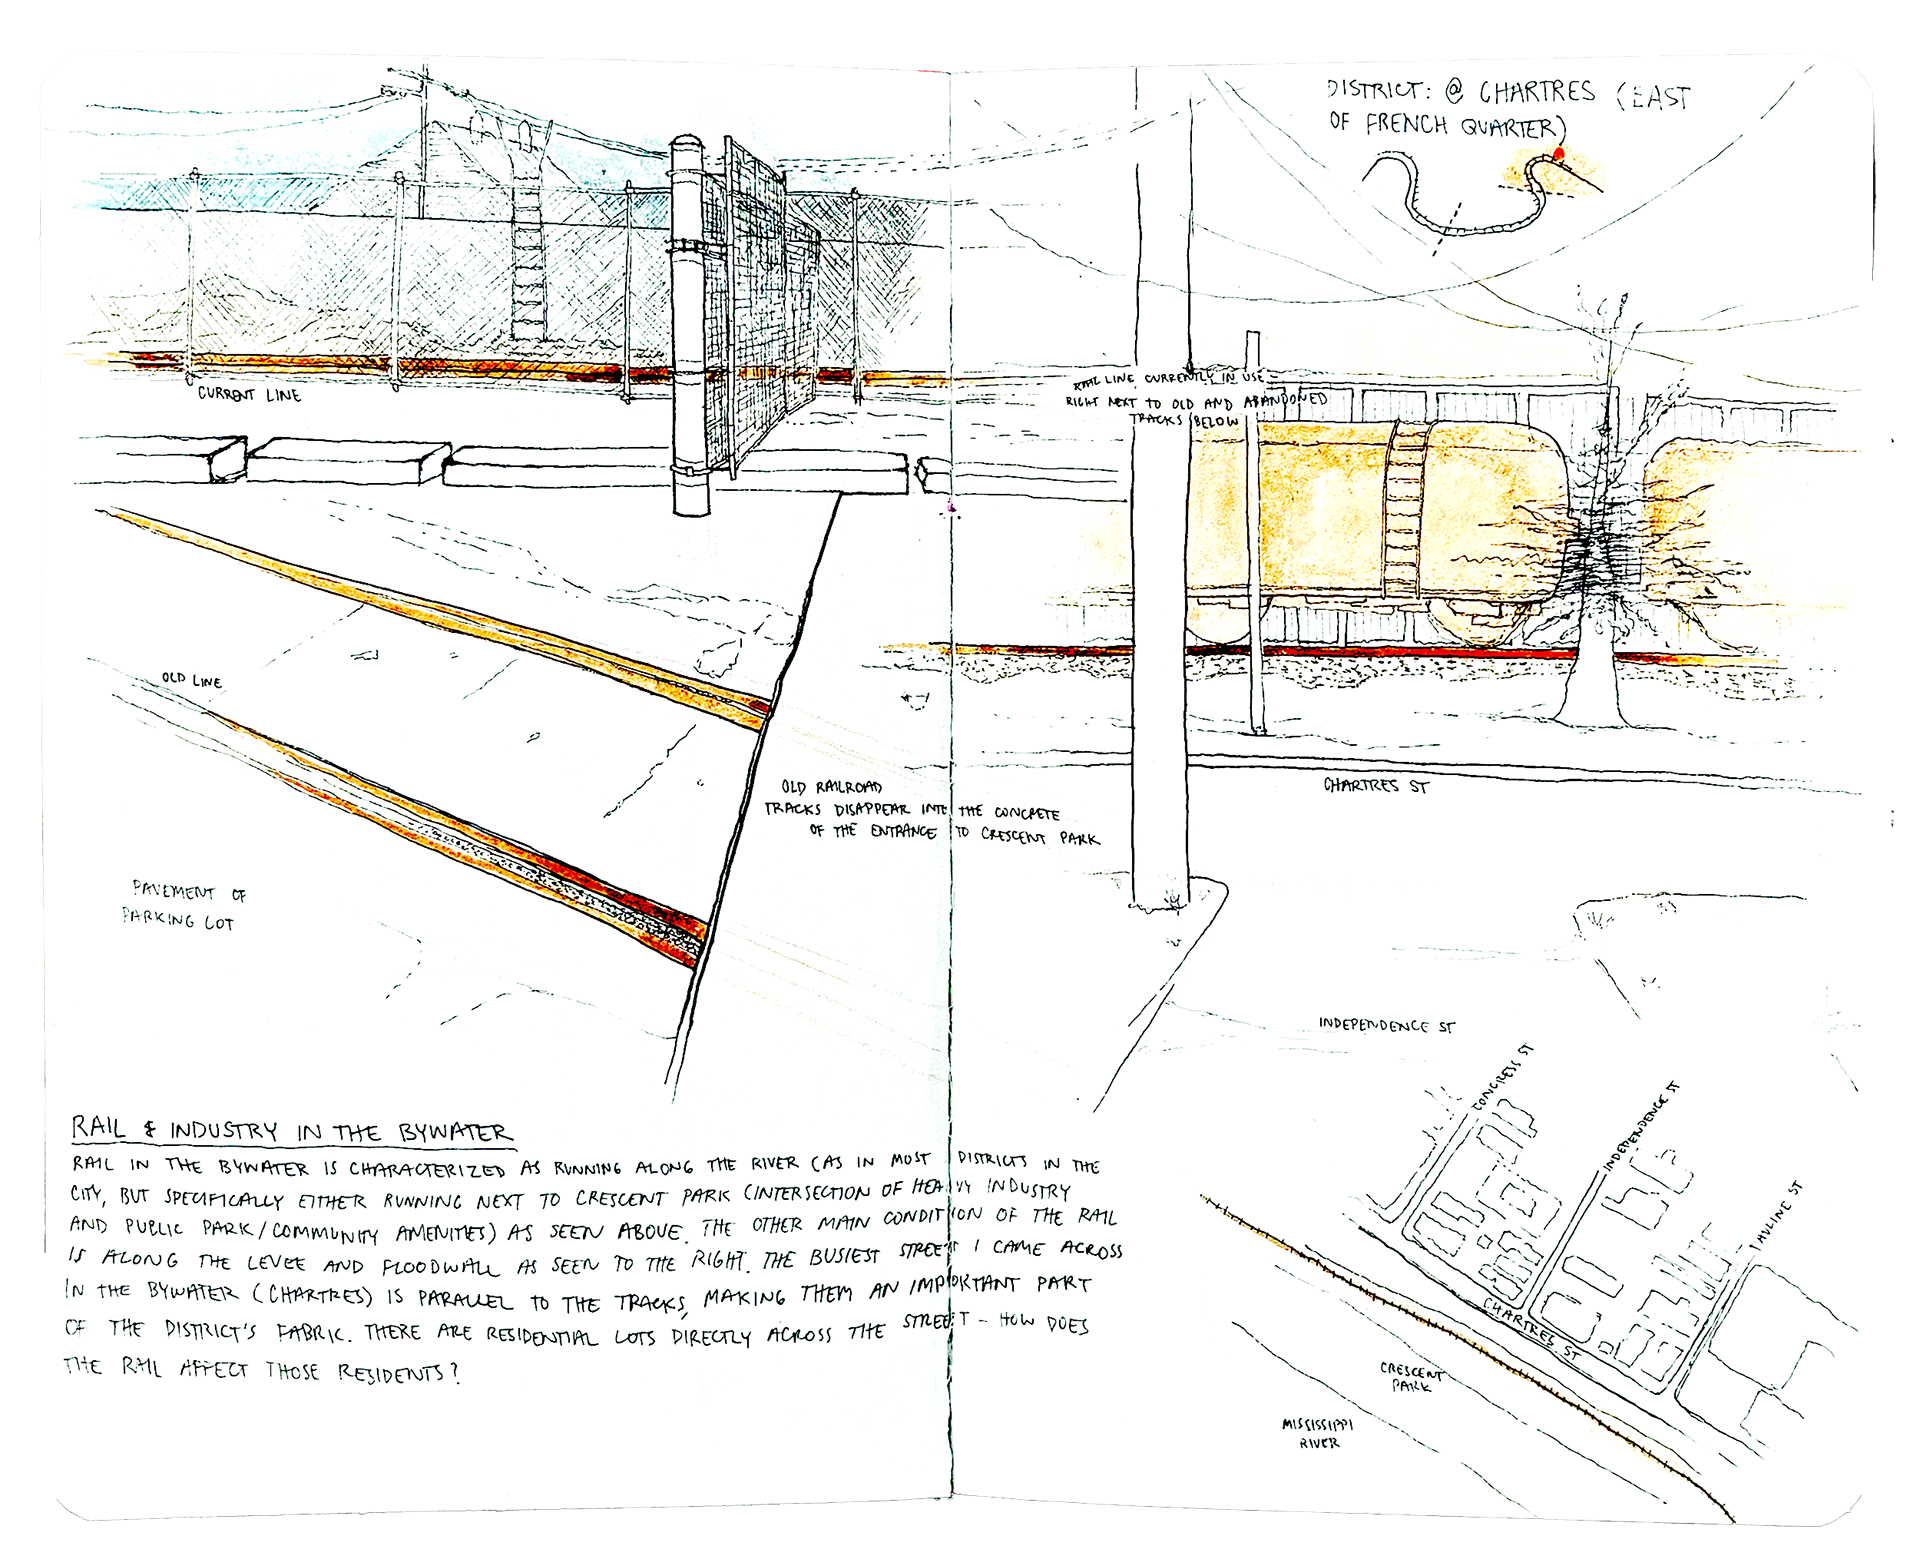 DISTRICT: @ CHARTRES (EAST
OF FRENCH QUARTER)
CURRENT LINE
RAIL LINE CURRENTLY IN USE
RIGHT NEXT TO OLD AND ABANDONED
TRACKS BELOW
OLD LINE
OLD RAILROAD
TRACKS DISAPPEAR INTO THE CONCRETE
OF THE ENTRANCE TO CRESCENT PARK
CHARTRES ST
PAVEMENT OF
PARKING LOT
INDEPENDENCE ST
RAIL & INDUSTRY IN THE BYWATER
RAIL IN THE BYWATER IS CHARACTERIZED AS RUNNING ALONG THE RIVER (AS IN MOST DISTRICTS IN THE
CITY, BUT SPECIFICALLY EITHER RUNNING NEXT TO CRESCENT PARK (INTERSECTION OF HEAVY INDUSTRY
AND PUBLIC PARK/COMMUNITY AMENITIES) AS SEEN ABOVE. THE OTHER MAIN CONDITION OF THE RAIL
IS ALONG THE LEVEE AND FLOODWALL AS SEEN TO THE RIGHT. THE BUSIEST STREET I CAME ACROSS
IN THE BYWATER (CHARTRES) IS PARALLEL TO THE TRACKS, MAKING THEM AN IMPORTANT PART
OF THE DISTRICT'S FABRIC. THERE ARE RESIDENTIAL LOTS DIRECTLY ACROSS THE STREET - HOW DOES
THE RAIL AFFECT THOSE RESIDENTS?
CONGRESS ST
INDEPENDENCE ST
PAULINE ST
CHARTRES ST
CRESCENT
PARK
MISSISSIPPI
RIVER